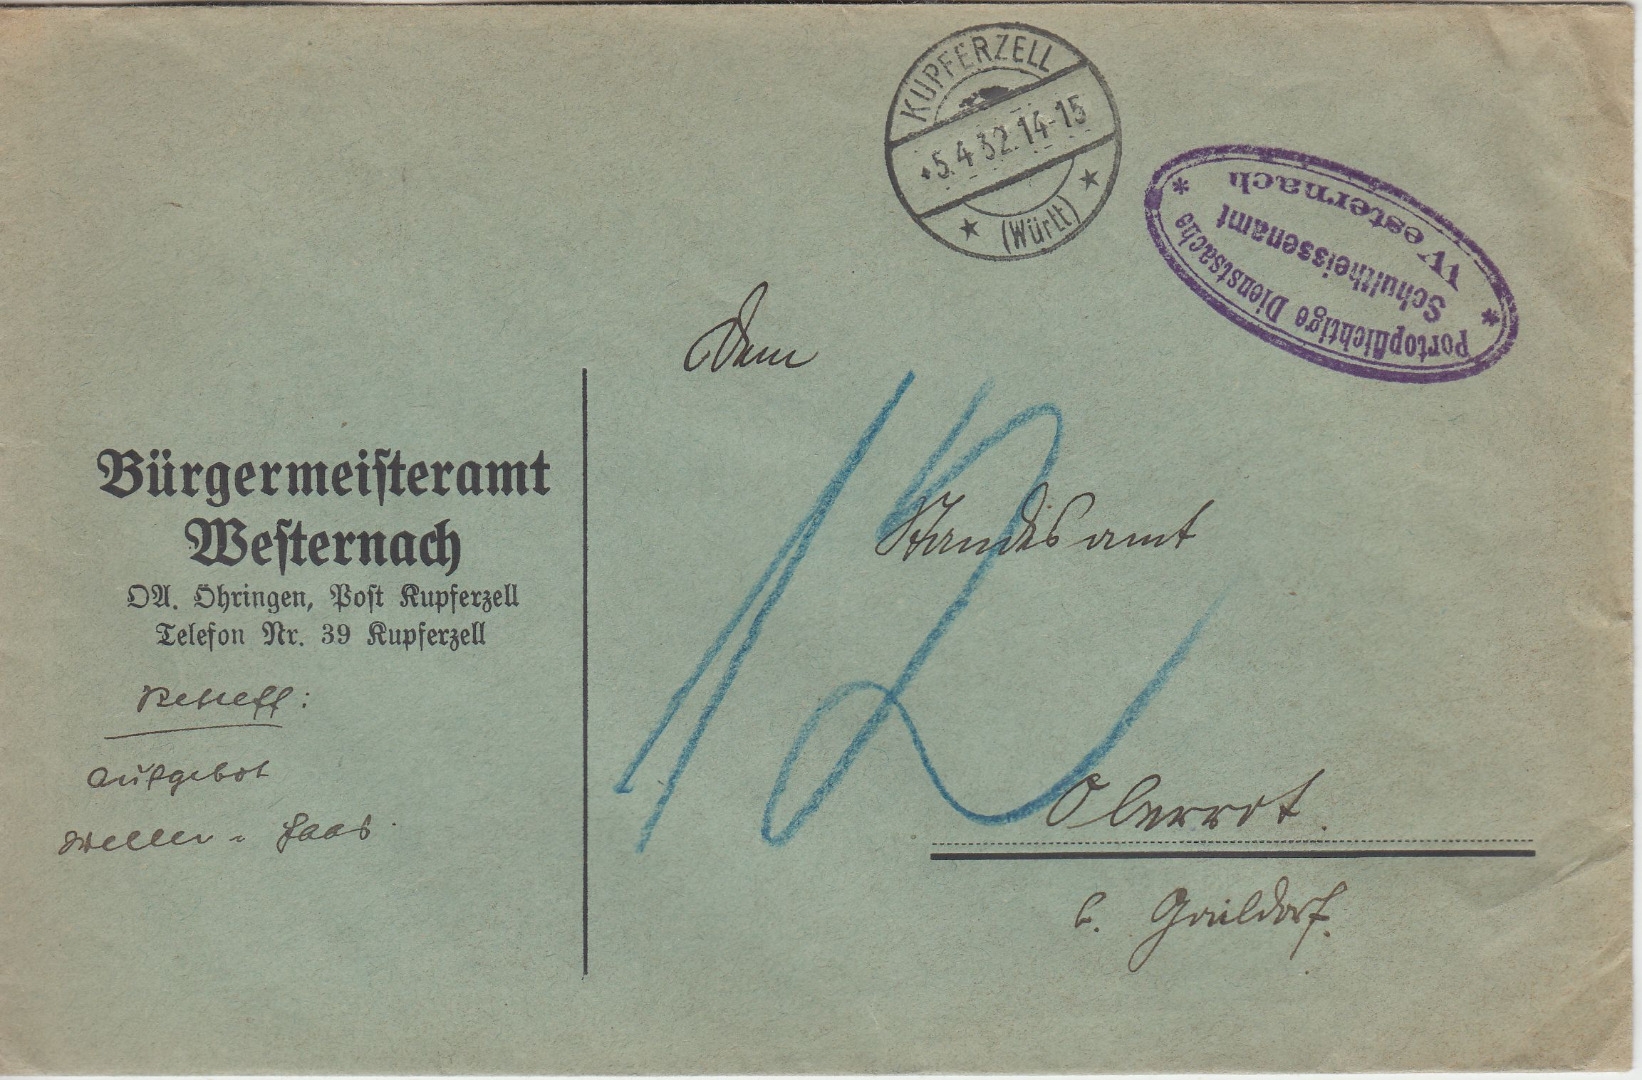 KUPFERZELL
*5.4.32.14-15
(Württ)
Portopflichtige Dienstsache
Schultheissenamt
Westernach
Dem
12
Standesamt
Oberrot.
b. Gaildorf.
Bürgermeiſteramt
Weſternach
OA. Öhringen, Poſt Kupferzell
Telefon Nr. 39 Kupferzell
Betreff:
Aufgebot
Weller - Haas.